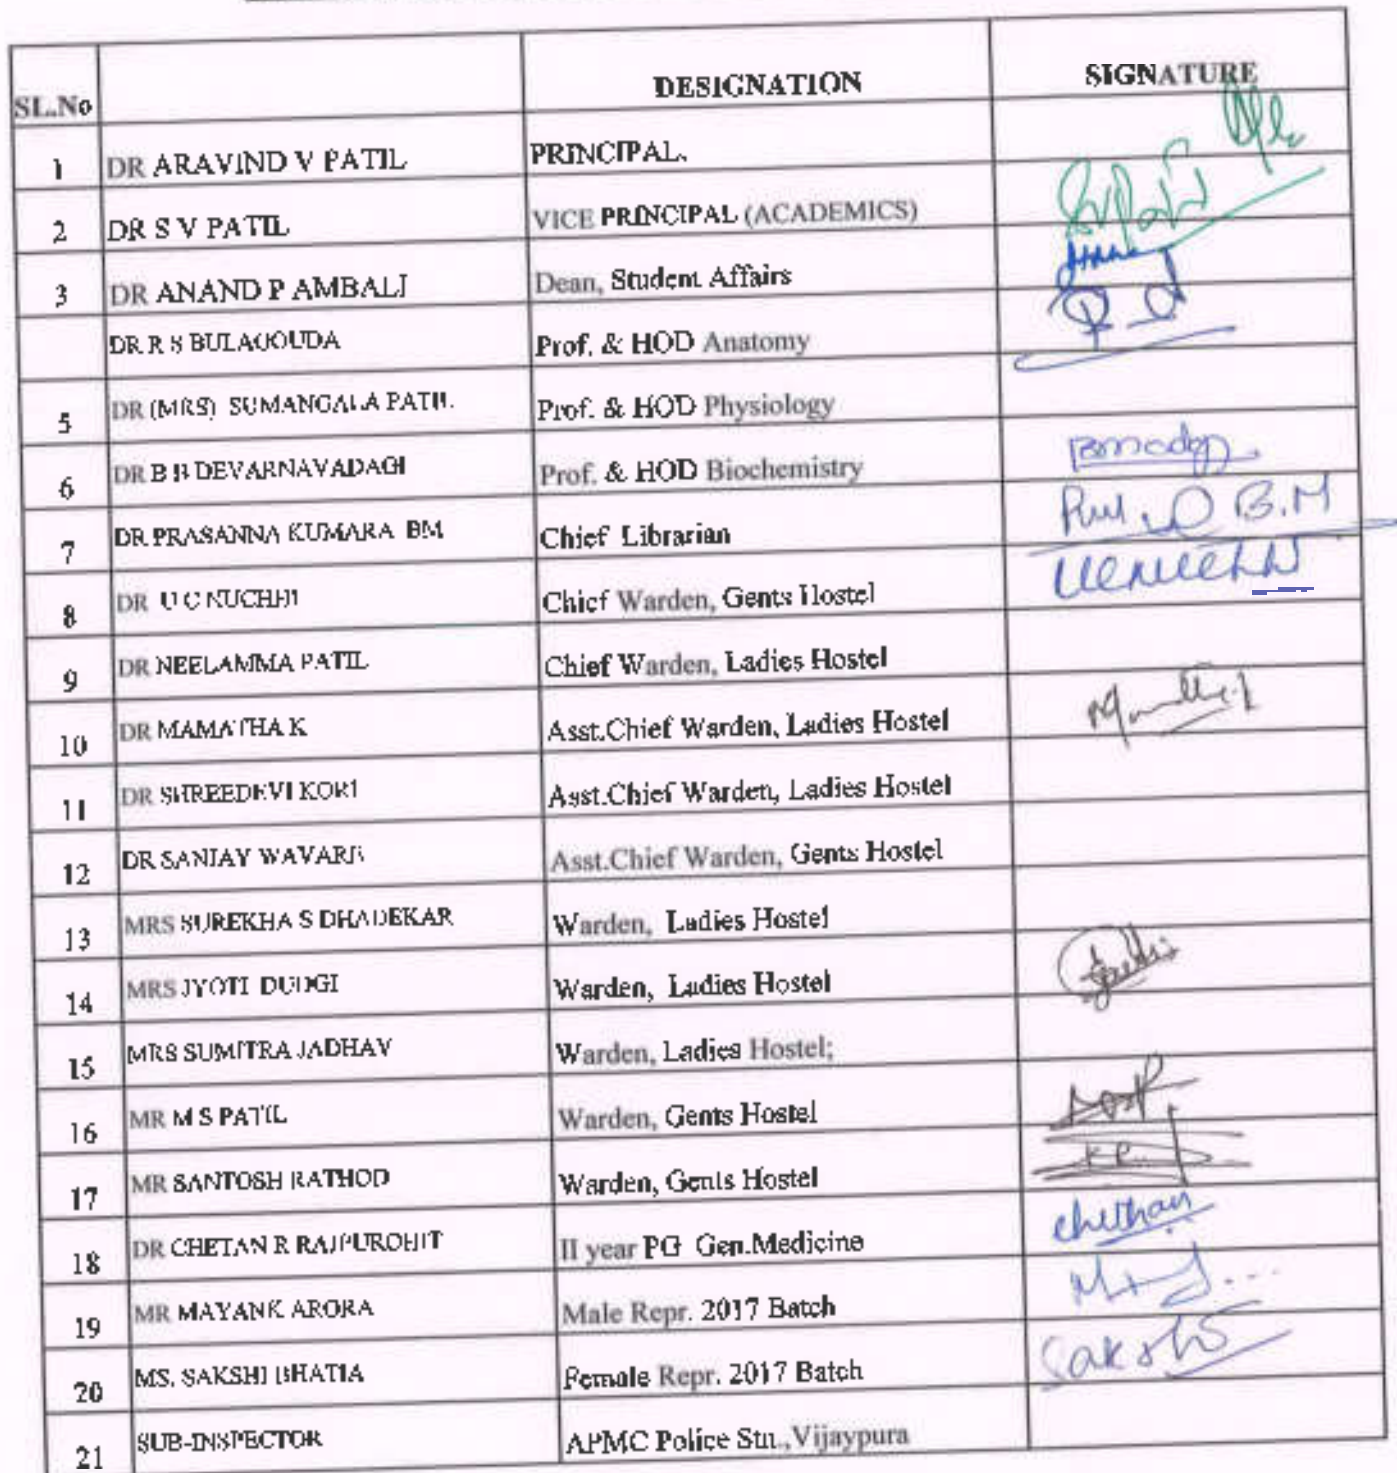 SL.No DESIGNATION SIGNATURE
1 DR ARAVIND V PATIL PRINCIPAL.
2 DR S V PATIL VICE PRINCIPAL (ACADEMICS)
3 DR ANAND P AMBALI Dean, Student Affairs
DR R S BULAGOUDA Prof. & HOD Anatomy
5 DR (MRS) SUMANGALA PATIL Prof. & HOD Physiology
6 DR B B DEVARNAVADAGI Prof. & HOD Biochemistry
7 DR PRASANNA KUMARA BM Chief Librarian B.M
8 DR U C NUCHHI Chief Warden, Gents Hostel
9 DR NEELAMMA PATIL Chief Warden, Ladies Hostel
10 DR MAMATHA K Asst.Chief Warden, Ladies Hostel
11 DR SHREEDEVI KORI Asst.Chief Warden, Ladies Hostel
12 DR SANJAY Asst.Chief Warden, Gents Hostel
13 MRS SUREKHA S DHADEKAR Warden, Ladies Hostel
14 MRS JYOTI DUDGI Warden, Ladies Hostel
15 MRS SUMITRA JADHAV Warden, Ladies Hostel;
16 MR M S PATIL Warden, Gents Hostel
17 MR SANTOSH RATHOD Warden, Gents Hostel
18 DR CHETAN R RAJPUROHIT II year PG Gen.Medicine chethan
19 MR MAYANK ARORA Male Repr. 2017 Batch
20 MS. SAKSHI BHATIA Female Repr. 2017 Batch Sakshi
21 SUB-INSPECTOR APMC Police Stn.,Vijaypura